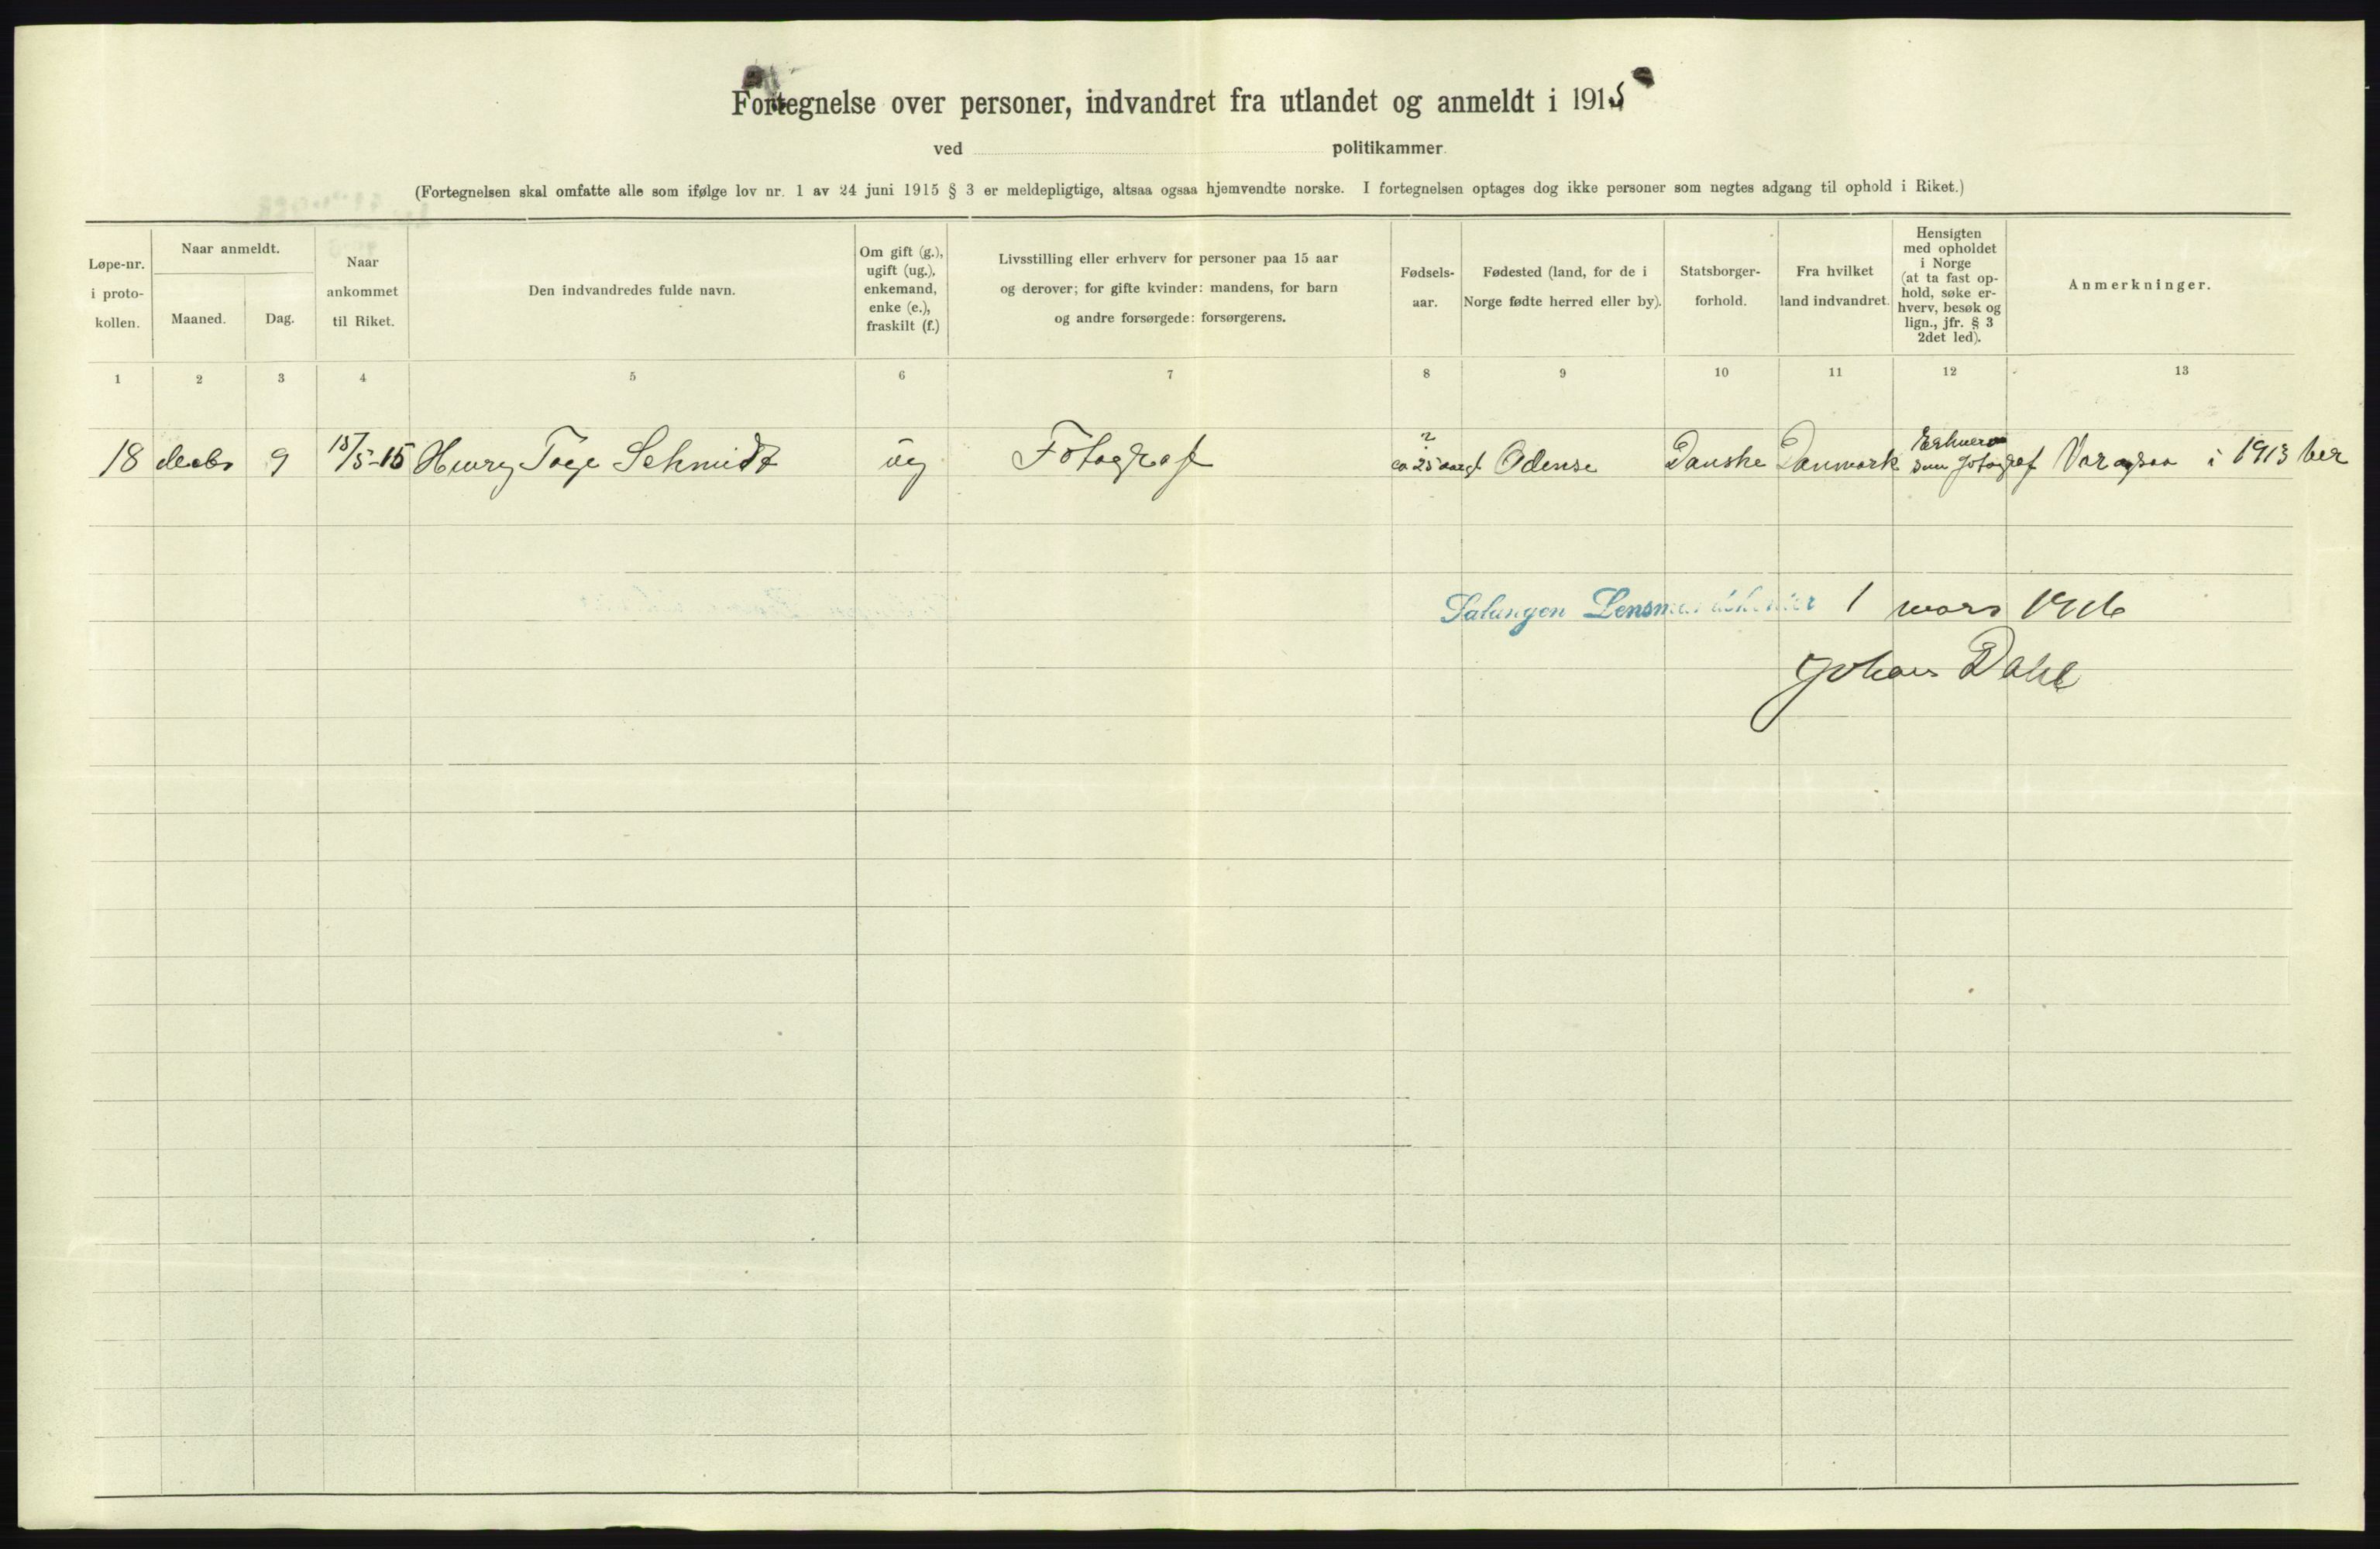 Fortegnelse over personer, indvandret fra utlandet og anmeldt i 1915
ved politikammer.
(Fortegnelsen skal omfatte alle som ifølge lov nr. 1 av 24 juni 1915 § 3 er meldepligtige, altsaa ogsaa hjemvendte norske. I fortegnelsen optages dog ikke personer som negtes adgang til ophold i Riket.)
Løpe-nr.
i proto-
kollen.
Naar anmeldt.
Maaned.
Dag.
Naar
ankommet
til Riket.
Den indvandredes fulde navn.
Om gift (g.),
ugift (ug.),
enkemand,
enke (e.),
fraskilt (f.)
Livsstilling eller erhverv for personer paa 15 aar
og derover; for gifte kvinder: mandens, for barn
og andre forsørgede: forsørgerens.
Fødsels-
aar.
Fødested (land, for de i
Norge fødte herred eller by).
Statsborger-
forhold.
Fra hvilket
land indvandret.
Hensigten
med opholdet
i Norge
(at ta fast op-
hold, søke er-
hverv, besøk og
lign., jfr. § 3
2det led).
Anmerkninger.
1 2 3 4 5 6 7 8 9 10 11 12 13
?
Erhverv
18 decbr 9 15/5-15 Henry Tage Schmidt ug Fotograf ca 25 aargl Odense Danske Danmark som Fotograf Var ogsaa i 1913 her
Salangen Lensmandskontor 1 mars 1916
Johans Dahl